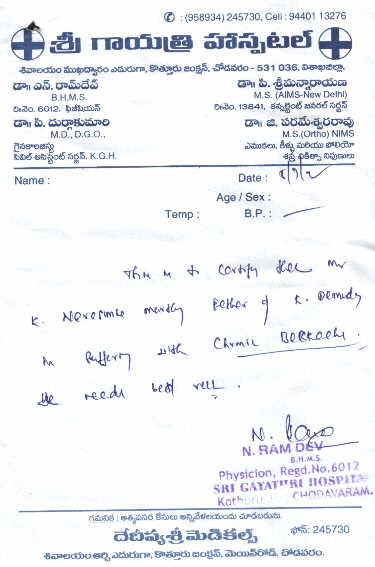 ✆ : (958934) 245730, Cell : 94401 13276
శ్రీ గాయత్రి హాస్పటల్
శివాలయం ముఖద్వారం ఎదురుగా, కొత్తూరు జంక్షన్, చోడవరం - 531 036, విశాఖజిల్లా.
డా॥ ఎన్. రామ్‌దేవ్
B.H.M.S.
రి.నెం. 6012, ఫిజీషియన్
డా॥ పి. దుర్గాకుమారి
M.D., D.G.O.,
గైనకాలజిస్టు
సివిల్ అసిస్టెంట్ సర్జన్, K.G.H.
డా॥ పి. శ్రీమన్నారాయణ
M.S. (AIMS-New Delhi)
రి.నెం. 13841, కన్సల్టెంట్ జనరల్ సర్జన్
డా॥ జి. పరమేశ్వరరావు
M.S.(Ortho) NIMS
ఎముకలు, కీళ్ళు మరియు పోలియో
శస్త్ర చికిత్సా నిపుణులు
Name :
Date :
Age / Sex :
Temp :
B.P. :
This is to certify that Mr
K. Narasimha father of K.
is suffering with Chronic
He needs best rest.
N. RAM DEV
B.H.M.S.
Physicion, Regd.No.6012
SRI GAYATHRI HOSPITAL
Kothuru J CHODAVARAM.
గమనిక : అత్యవసర కేసులు అన్నివేళలయందు చూడబడును.
దేవీవ్యశ్రీ మెడికల్స్
ఫోన్: 245730
శివాలయం ఆర్చి ఎదురుగా, కొత్తూరు జంక్షన్, మెయిన్‌రోడ్, చోడవరం.